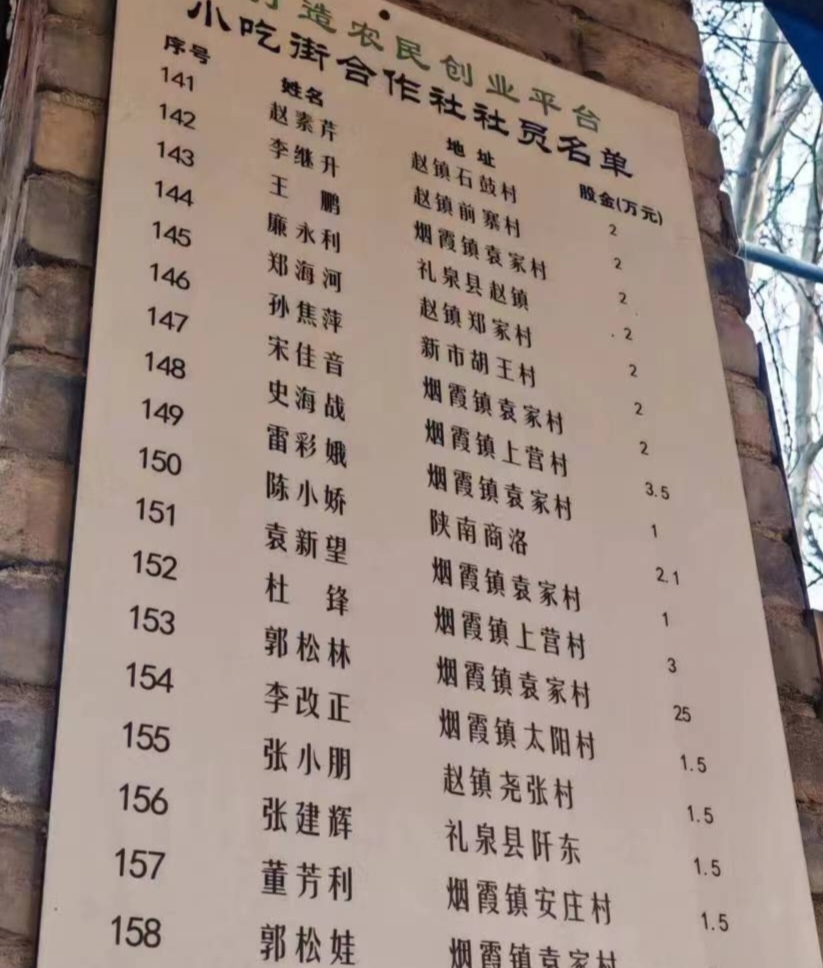 打造农民创业平台
小吃街合作社社员名单
序号 姓名 地址 股金(万元)
141 赵素芹 赵镇石鼓村 2
142 李继升 赵镇前寨村 2
143 王 鹏 烟霞镇袁家村 2
144 廉永利 礼泉县赵镇 2
145 郑海河 赵镇郑家村 2
146 孙焦萍 新市胡王村 2
147 宋佳音 烟霞镇袁家村 2
148 史海战 烟霞镇上营村 3.5
149 雷彩娥 烟霞镇袁家村 1
150 陈小娇 陕南商洛 2.1
151 袁新望 烟霞镇袁家村 1
152 杜 锋 烟霞镇上营村 3
153 郭松林 烟霞镇袁家村 25
154 李改正 烟霞镇太阳村 1.5
155 张小朋 赵镇尧张村 1.5
156 张建辉 礼泉县阡东 1.5
157 董芳利 烟霞镇安庄村 1.5
158 郭松娃 烟霞镇袁家村